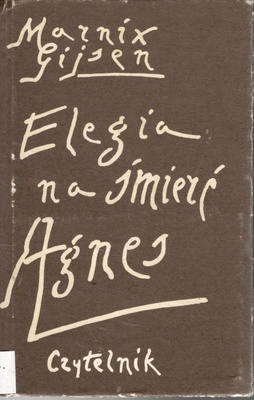 Marnix
Gijsen
Elegia
na śmierć
Agnes
Czytelnik